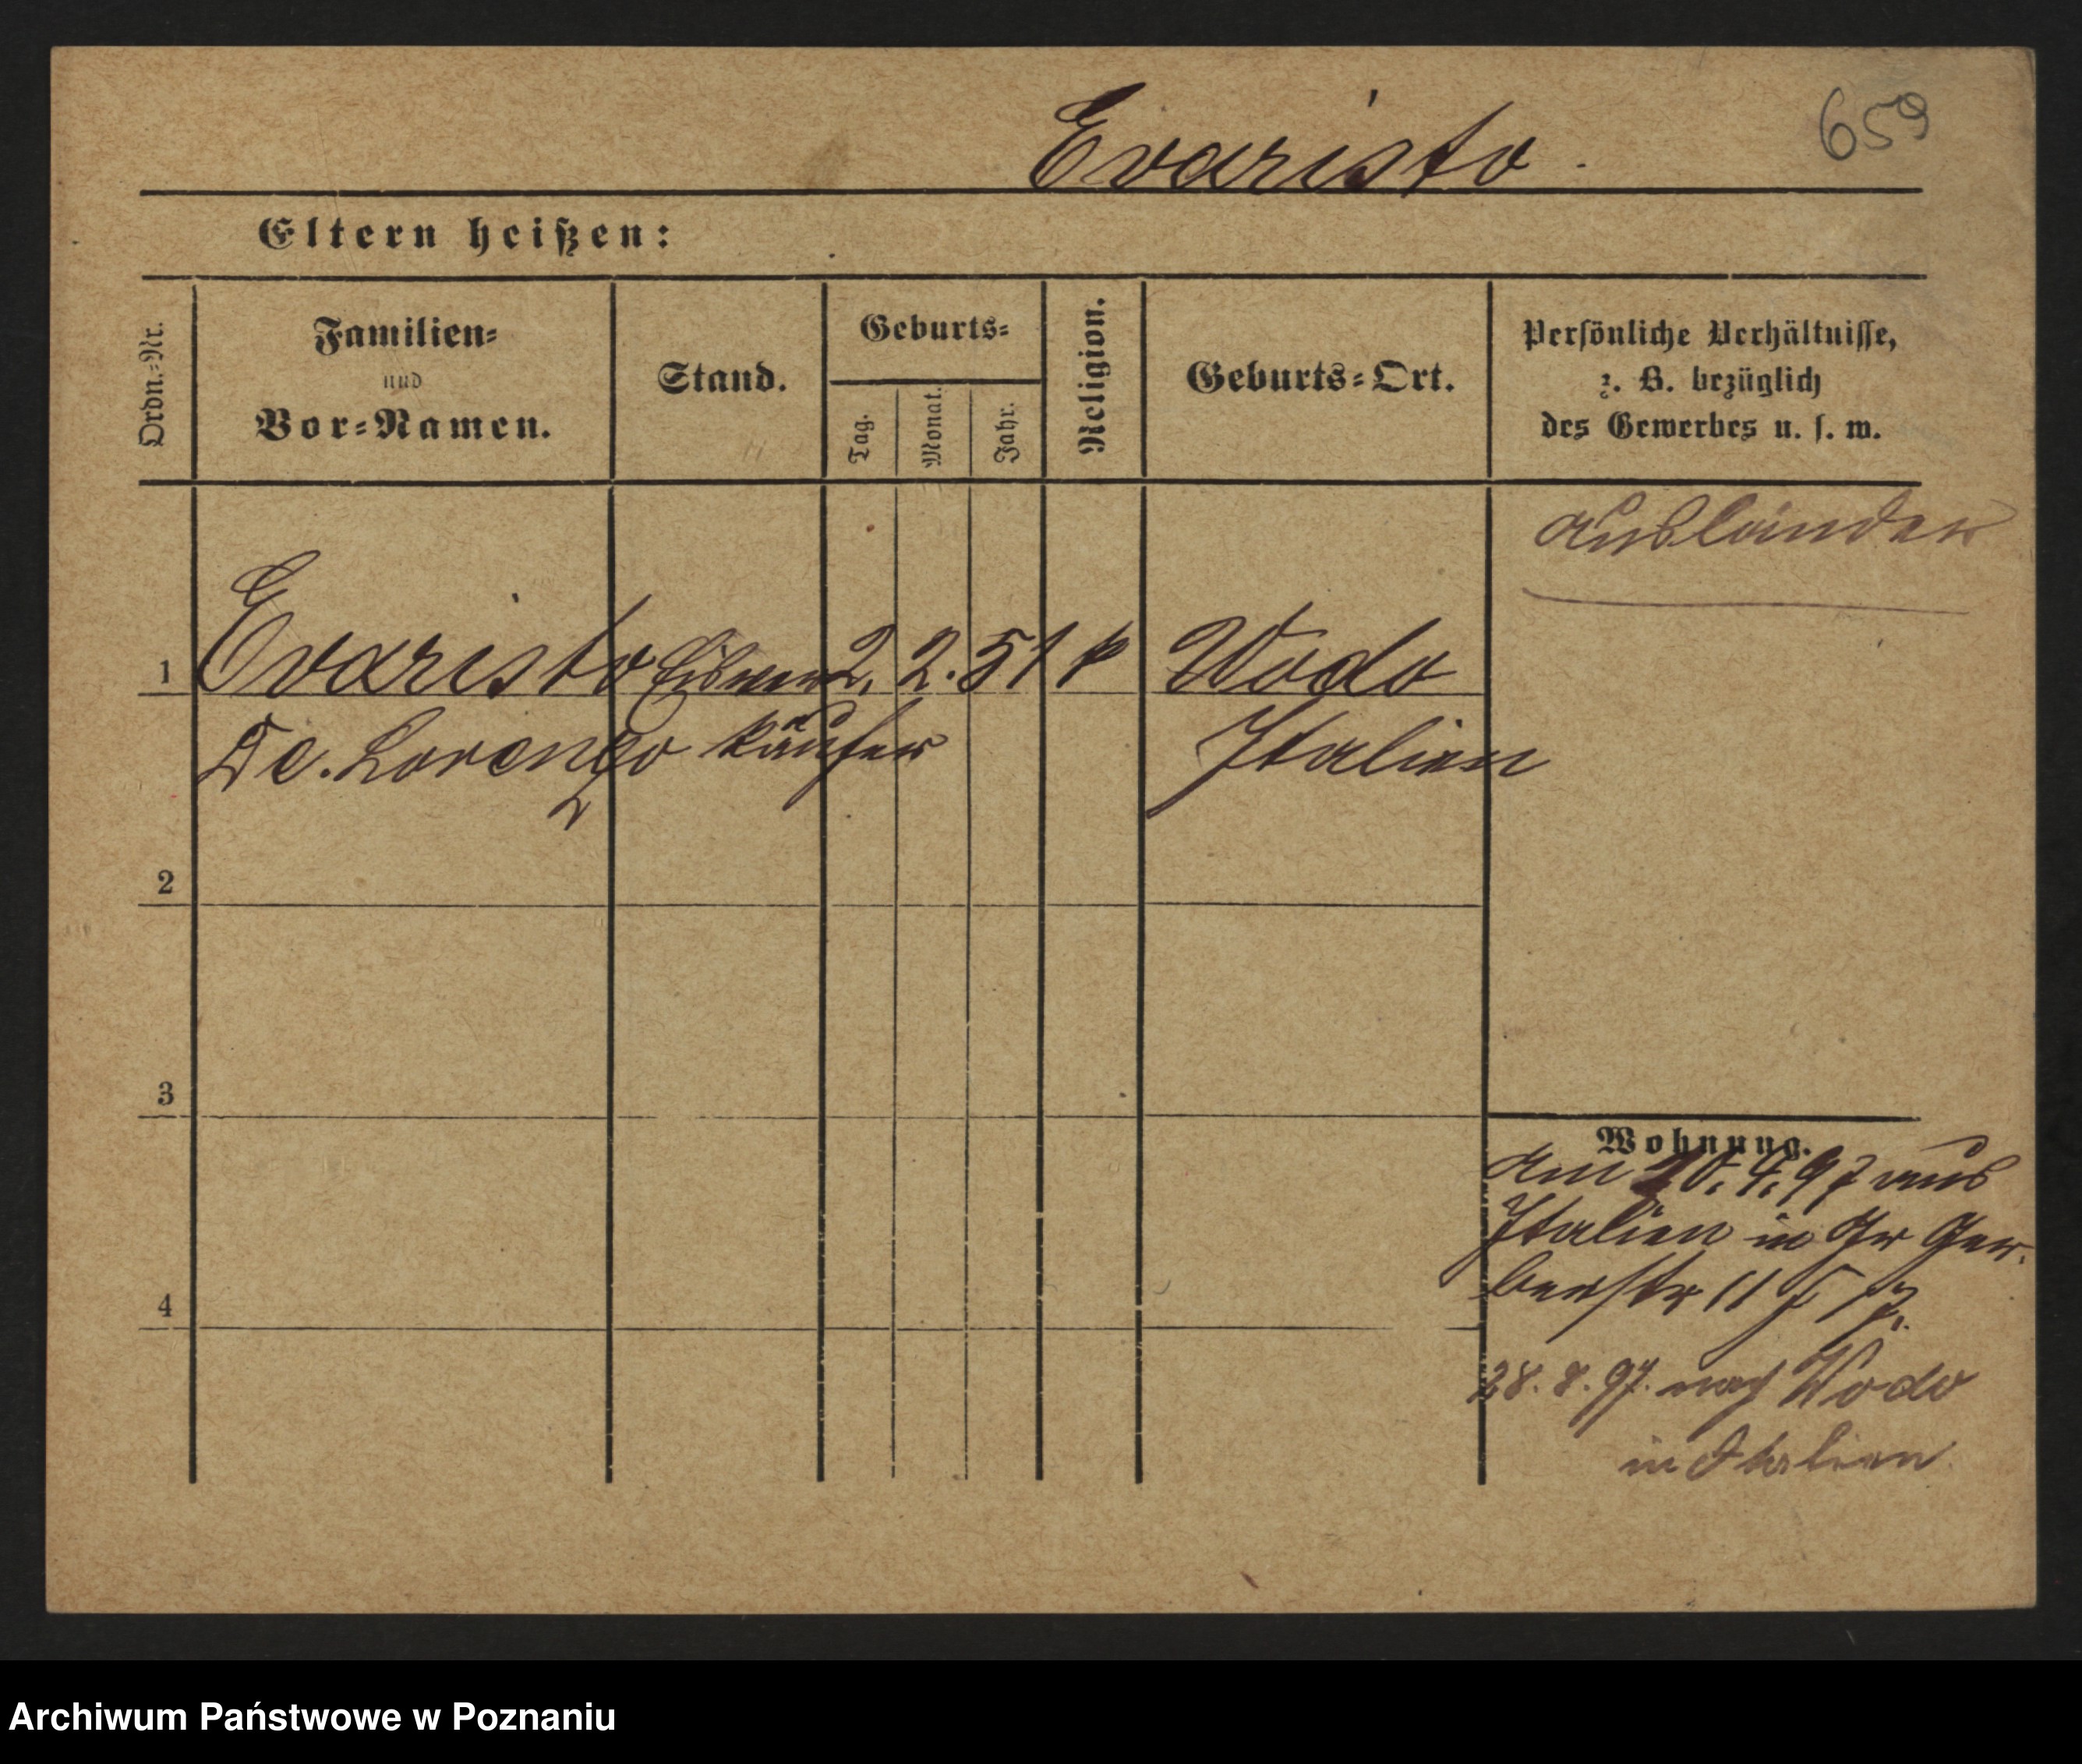 Evaristo
659
Eltern heißen:
Ordn.-Nr.
Familien-
und
Vor-Namen.
Stand.
Geburts-
Tag.
Monat.
Jahr.
Religion.
Geburts-Ort.
Persönliche Verhältnisse,
z. B. bezüglich
des Gewerbes u. s. w.
Ausländer
1 Evaristo Eisver 2. 2. 51 k Vodo
De. Lorenzo käufer Italien
2
3
4
Wohnung.
am 20.4.97 aus
Italien in Gr Ger-
berstr 11
28. 8. 97. nach Vodo
in Italien
Archiwum Państwowe w Poznaniu